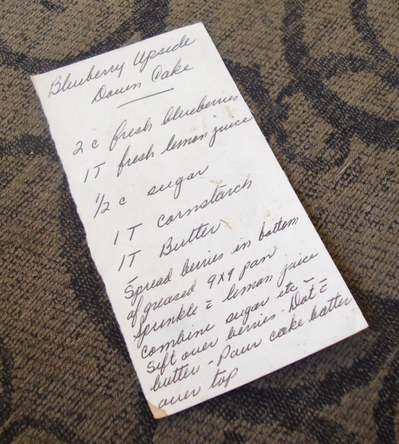 Blueberry Upside
Down Cake
2 c fresh blueberries
1 T fresh lemon juice
1/2 c sugar
1 T cornstarch
1 T Butter
Spread berries in bottom
of greased 9x9 pan
Sprinkle c̄ lemon juice
combine sugar etc -
Sift over berries - Dot c̄
butter - Pour cake batter
over top